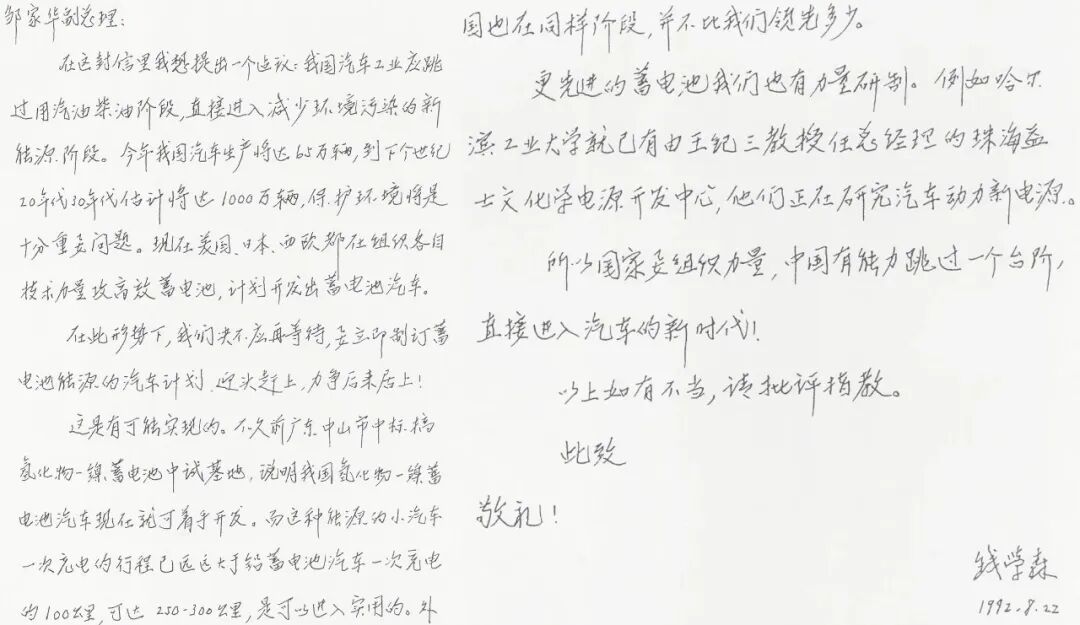 邹家华副总理：
在这封信里我想提出一个建议：我国汽车工业应跳
过用汽油柴油阶段，直接进入减少环境污染的新
能源阶段。今年我国汽车生产将达65万辆，到下个世纪
20年代30年代估计将达1000万辆，保护环境将是
十分重要问题。现在美国、日本、西欧都在组织各自
技术力量攻高效蓄电池，计划开发出蓄电池汽车。
在此形势下，我们决不应再等待，要立即制订蓄
电池能源的汽车计划，迎头赶上，力争后来居上！
这是有可能实现的。不久前广东中山市中标搞
氢化物—镍蓄电池中试基地，说明我国氢化物—镍蓄
电池汽车现在就可着手开发。而这种能源的小汽车
一次充电的行程已远远大于铅蓄电池汽车一次充电
的100公里，可达250-300公里，是可以进入实用的。外
国也在同样阶段，并不比我们领先多少。
更先进的蓄电池我们也有力量研制。例如哈尔
滨工业大学就已有由王纪三教授任总经理的珠海益
士文化学电源开发中心，他们正在研究汽车动力新电源。
所以国家要组织力量，中国有能力跳过一个台阶，
直接进入汽车的新时代！
以上如有不当，请批评指教。
此致
敬礼！
钱学森
1992.8.22